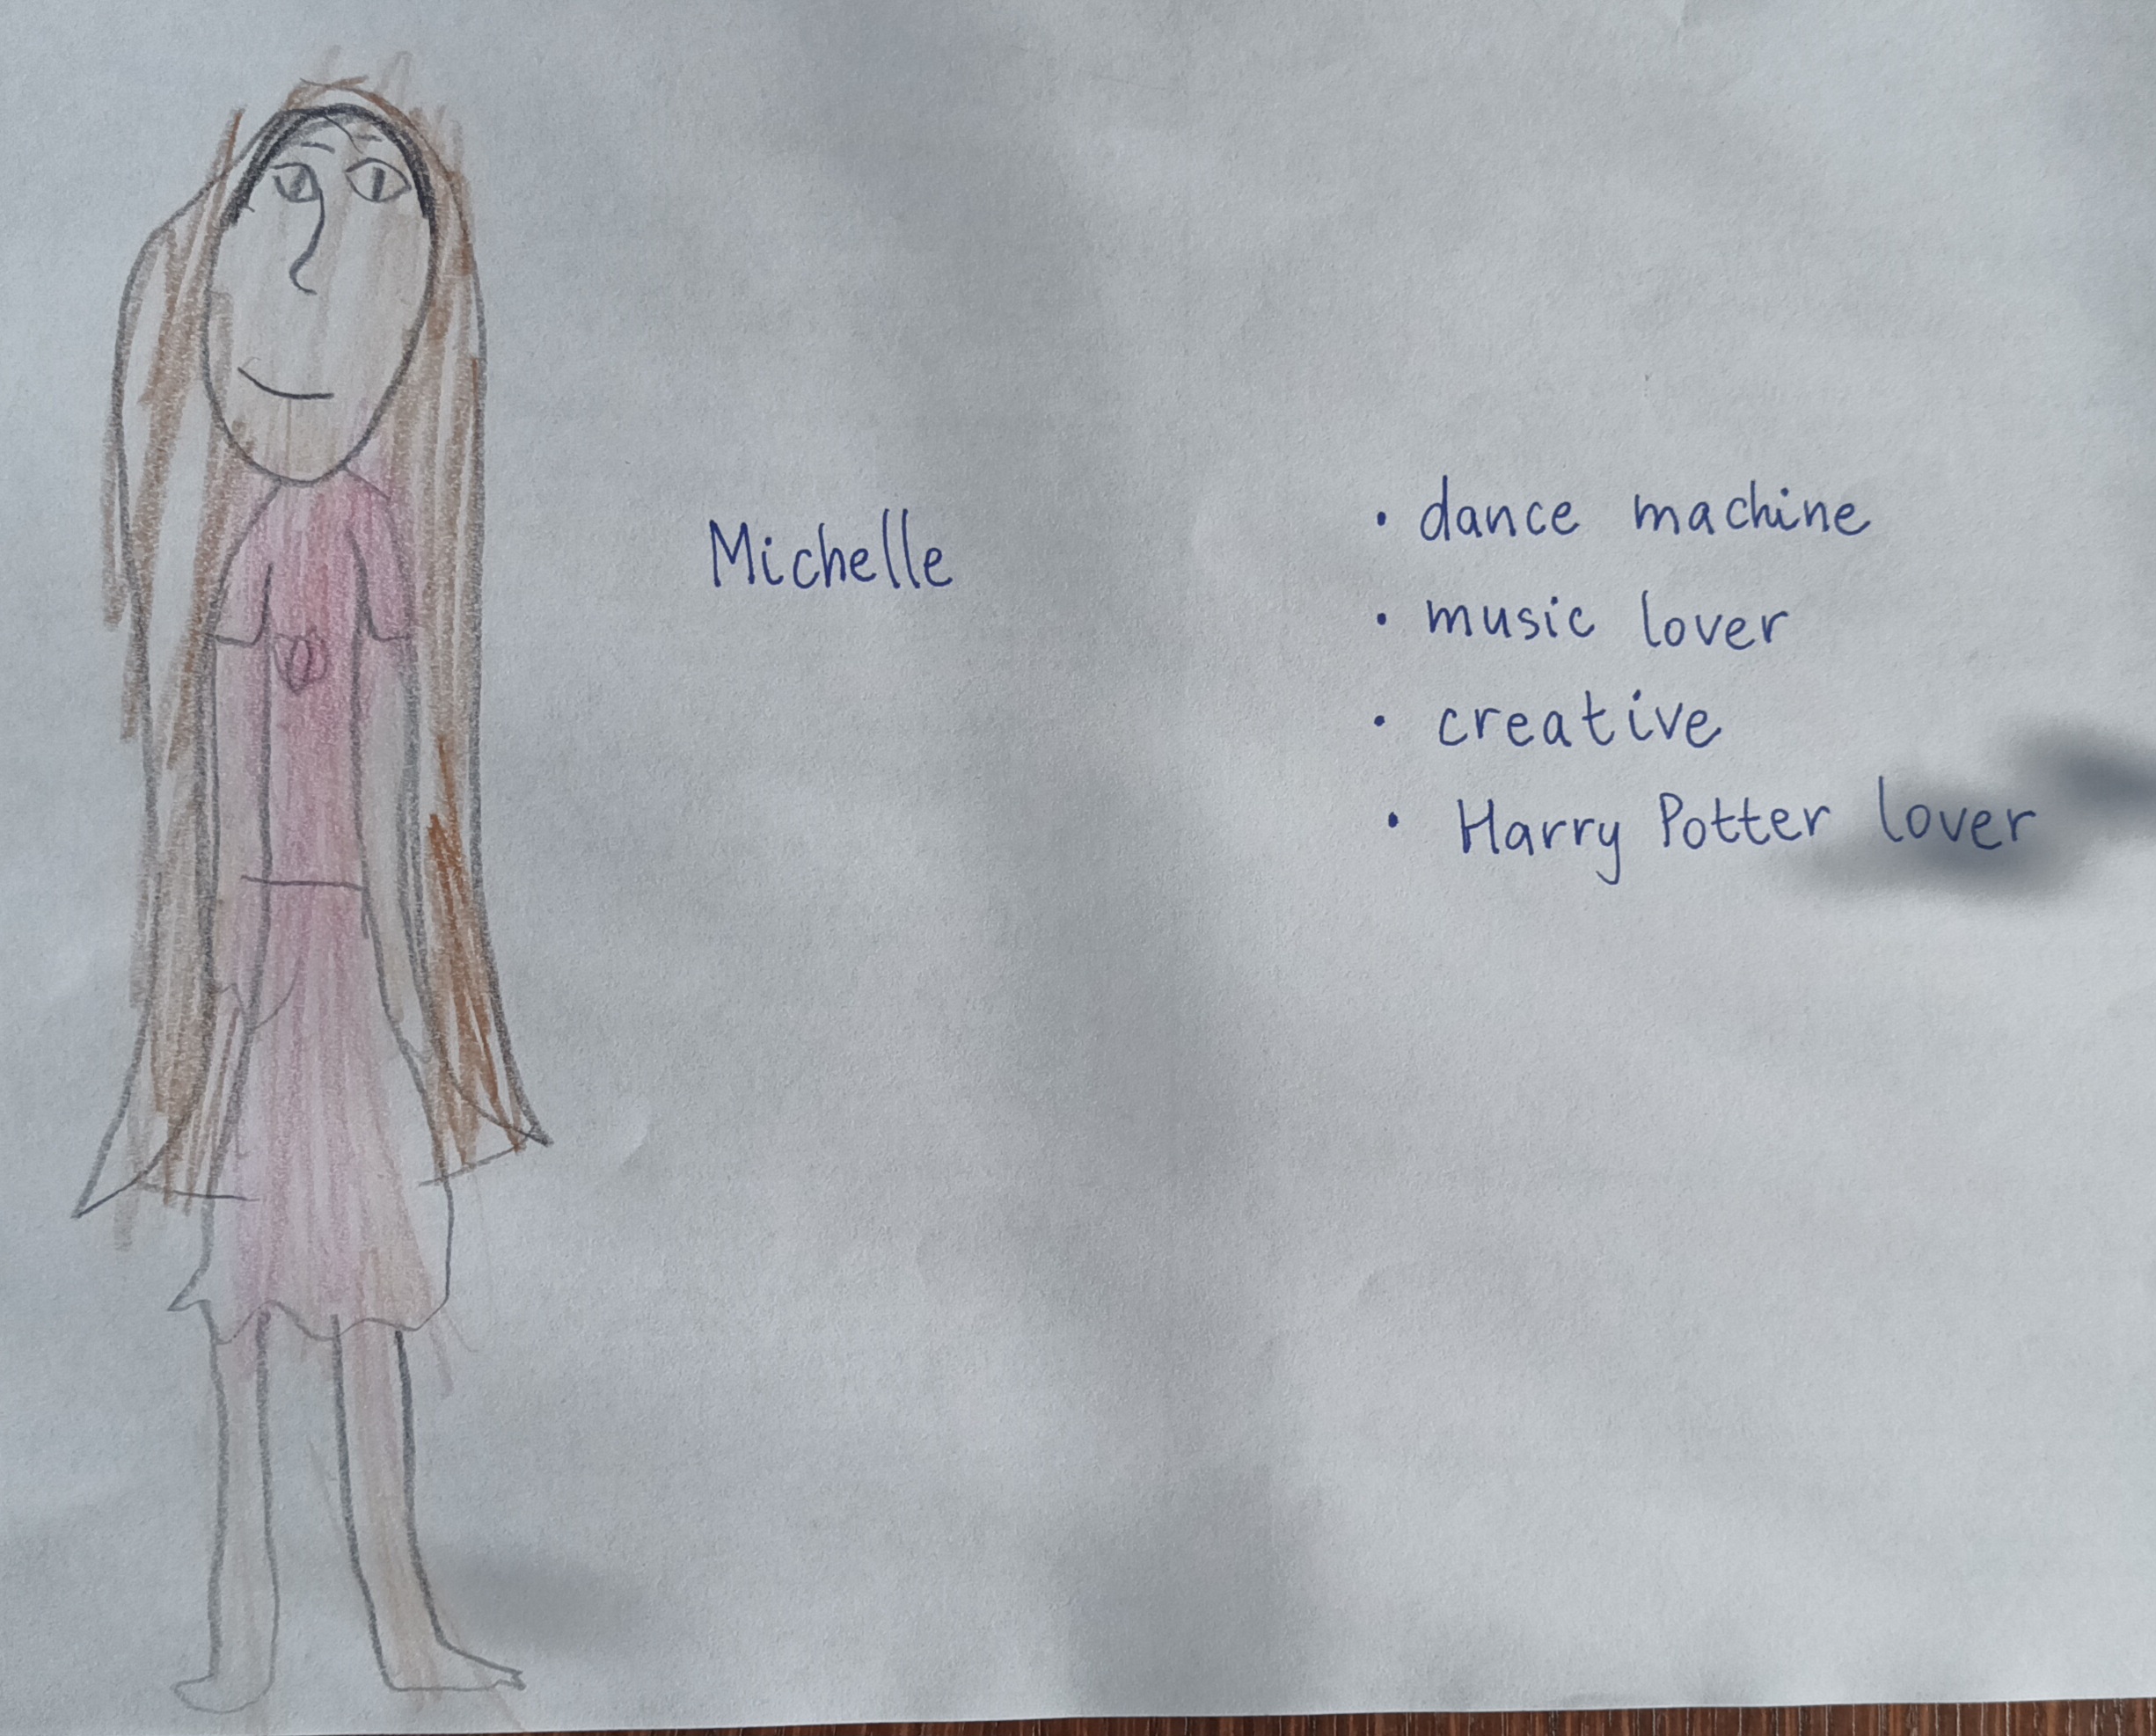 Michelle
• dance machine
• music lover
• creative
• Harry Potter lover